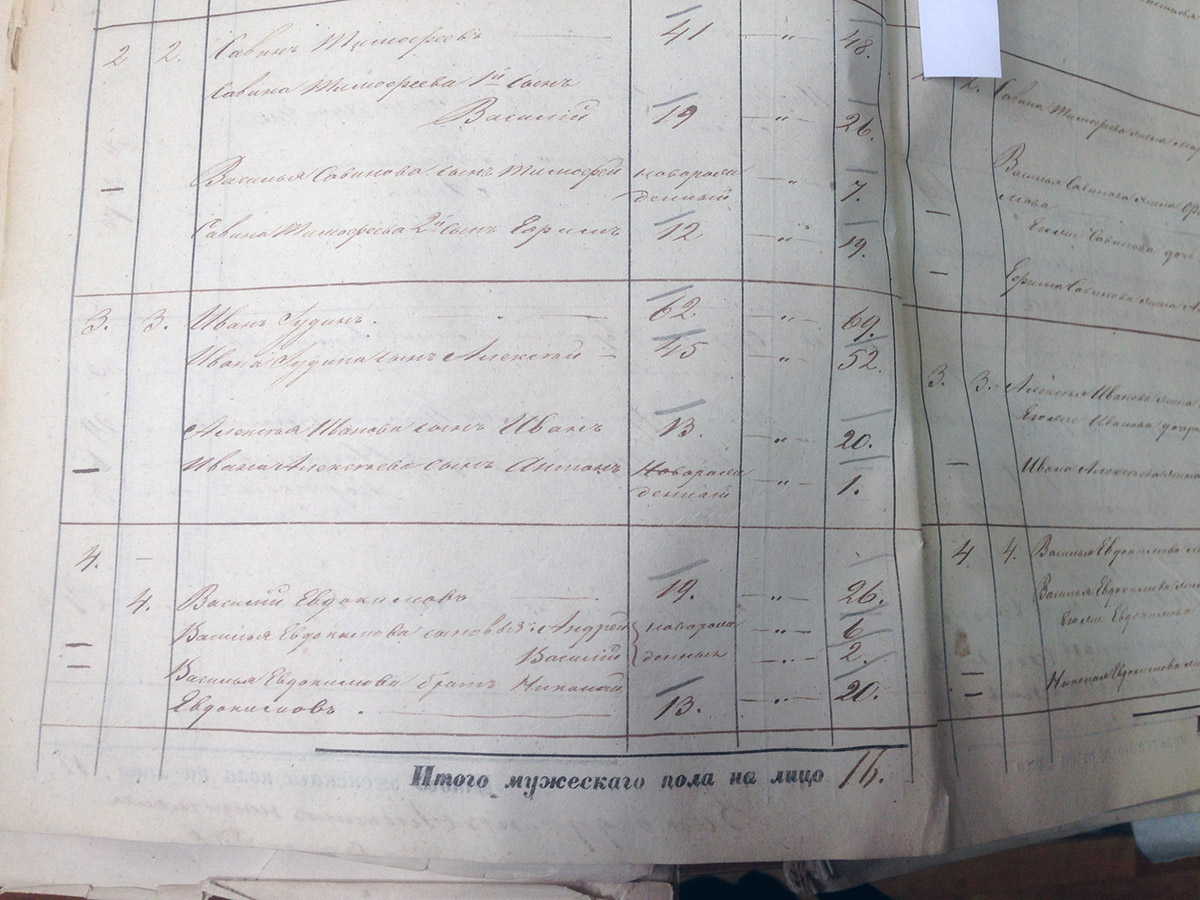 2 2. Савинъ Тимофеевъ 41 — „ — 48.
Савина Тимофеева 1й сынъ
Василій 19 — „ — 26.
— Василья Савинова сынъ Тимофей новорож- — „ — 7.
денный
Савина Тимофеева 2й сынъ Ефимъ 12 — „ — 19.
3. 3. Иванъ Гудинъ. 62 „ 69.
Ивана Гудина сынъ Алексѣй — 45 — „ — 52.
Алексѣя Иванова сынъ Иванъ 13. — „ — 20.
— Ивана Алексѣева сынъ Антонъ Новорож- — „ — 1.
денный
4. —
4. Василій Евдокимовъ 19. — „ — 26.
— Василья Евдокимова сыновья: Андрей новорож- — „ — 6
— Василій денныхъ — „ — 2.
Василья Евдокимова братъ Николай
Евдокимовъ. 13. — „ — 20.
Итого мужескаго пола на лицо
2. Савина Тимофеева жена
Василья Савинова жена
— Егоже Савинова дочь
— Ефима Савинова жена
3. 3. Алексѣя Иванова жена
Егоже Иванова дочери
— Ивана Алексѣева жена
4 4. Василья Евдокимова
Василья Евдокимова
Егоже Евдокимова
— Николая Евдокимова